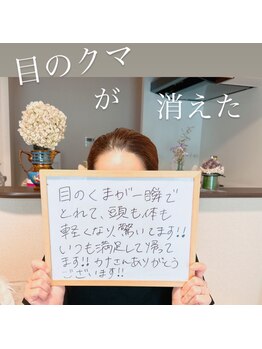 目のクマ
が
消えた
目のくまが一瞬で
とれて、頭も体も
軽くなり、驚いてます!!
いつも満足して帰って
ます!! カナさんありがとう
ございます!!